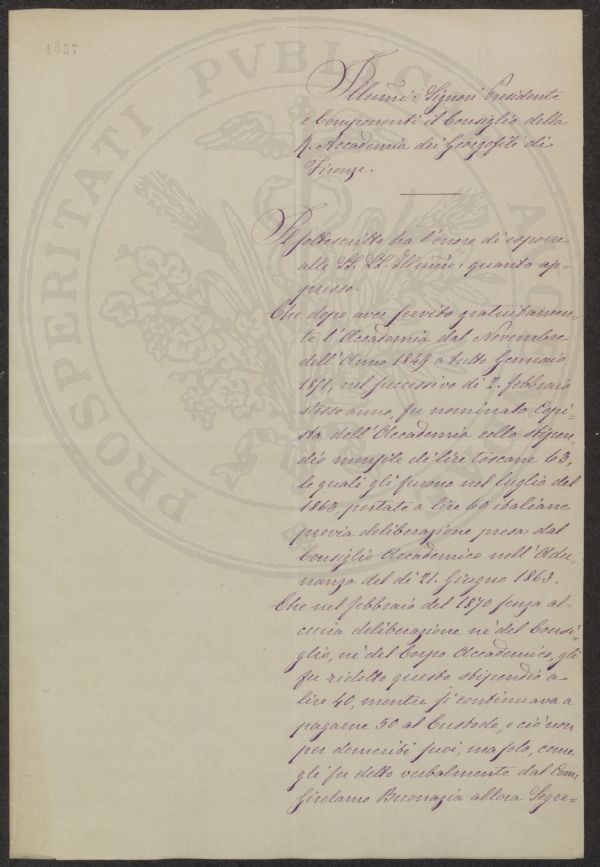 1037
PROSPERITATI PVBLIC
Illumi: Signori Presidente
e Componenti il Consiglio della
R. Accademia dei Georgofili di
Firenze.
Il sottoscritto ha l'onore di esporre
alle LL. LL. Illume: quanto ap=
presso.
Che dopo aver servito gratuitamen=
te l'Accademia dal Novembre
dell'Anno 1849 a tutto Gennaio
1851, nel successivo dì 2. febbraio
stesso anno, fu nominato Copi=
sta dell'Accademia collo stipen=
dio mensile di lire toscane 63,
le quali gli furono nel luglio del
1863, portate a lire 60 italiane
previa deliberazione presa dal
Consiglio Accademico nell'Adu=
nanza del dì 21. Giugno 1863.
Che nel febbraio del 1870 senza al=
cuna deliberazione nè del Consi=
glio, nè del Corpo Accademico, gli
fu ridotto questo stipendio a
lire 40, mentre si continuava a
pagarne 50 al Custode, e ciò non
per demeriti suoi, ma solo, come
gli fu detto verbalmente dal Com.
Girolamo Buonazia allora Segre=